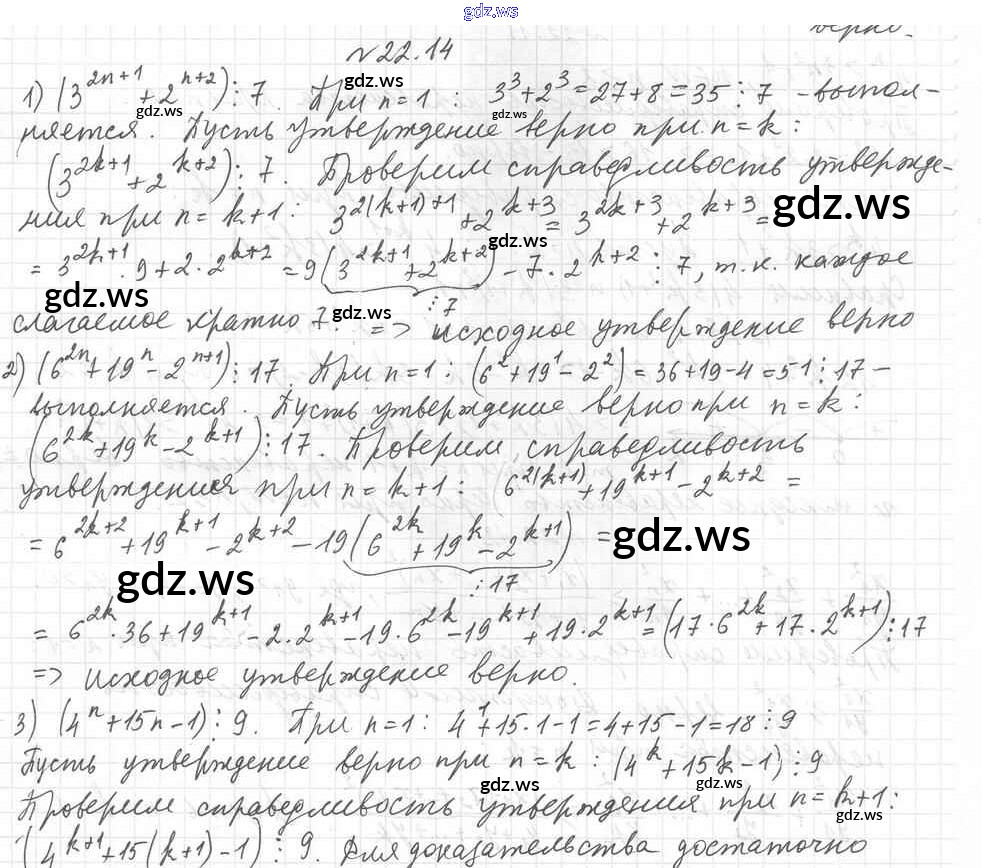 gdz.ws
верно.
№22.14
gdz.ws
1) (3^{2n+1} + 2^{n+2}) ⋮ 7. При n=1 : 3^3+2^3=27+8=35 ⋮ 7 - выпол-
gdz.ws gdz.ws
няется. Пусть утверждение верно при n=k:
(3^{2k+1} + 2^{k+2}) ⋮ 7. Проверим справедливость утвержде-
ния при n=k+1: 3^{2(k+1)+1} + 2^{k+3} = 3^{2k+3} + 2^{k+3} =
gdz.ws
gdz.ws
= 3^{2k+1}·9+2·2^{k+2} = 9(3^{2k+1}+2^{k+2}) - 7·2^{k+2} ⋮ 7, т.к. каждое
⋮7
gdz.ws gdz.ws
слагаемое кратно 7. => исходное утверждение верно
2) (6^{2n}+19^n-2^{n+1}) ⋮ 17. При n=1 : (6^2+19^1-2^2) = 36+19-4=51 ⋮ 17 -
выполняется. Пусть утверждение верно при n=k:
(6^{2k}+19^k-2^{k+1}) ⋮ 17. Проверим справедливость
утверждения при n=k+1: (6^{2(k+1)}+19^{k+1}-2^{k+2} =
= 6^{2k+2}+19^{k+1}-2^{k+2}-19(6^{2k}+19^k-2^{k+1}) =
gdz.ws
⋮17
gdz.ws
= 6^{2k}·36+19^{k+1}-2·2^{k+1}-19·6^{2k}-19^{k+1}+19·2^{k+1} = (17·6^{2k}+17·2^{k+1}) ⋮ 17
=> исходное утверждение верно.
3) (4^n+15n-1) ⋮ 9. При n=1: 4^1+15·1-1=4+15-1=18 ⋮ 9
Пусть утверждение верно при n=k : (4^k+15k-1) ⋮ 9
gdz.ws gdz.ws
Проверим справедливость утверждения при n=k+1:
gdz.ws
(4^{k+1}+15(k+1)-1) ⋮ 9. Для доказательства достаточно